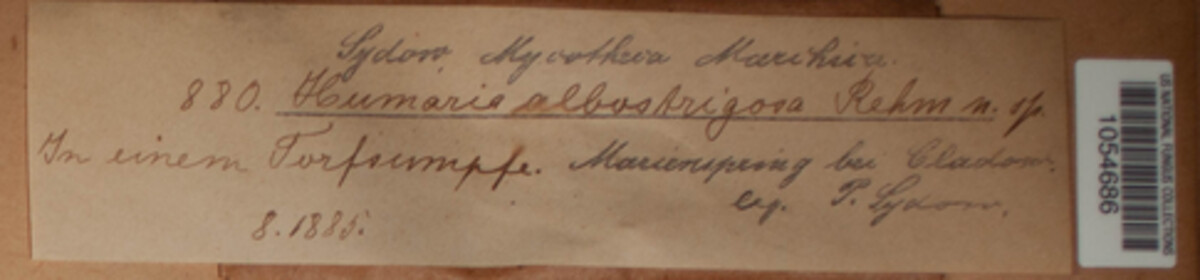 Sydow, Mycotheca Marchica.
880. Humaria albostrigosa Rehm n. sp.
In einem Torfsumpfe. Marienspring bei Cladow.
leg. P. Sydow.
8.1885.
US NATIONAL FUNGUS COLLECTIONS
1054686